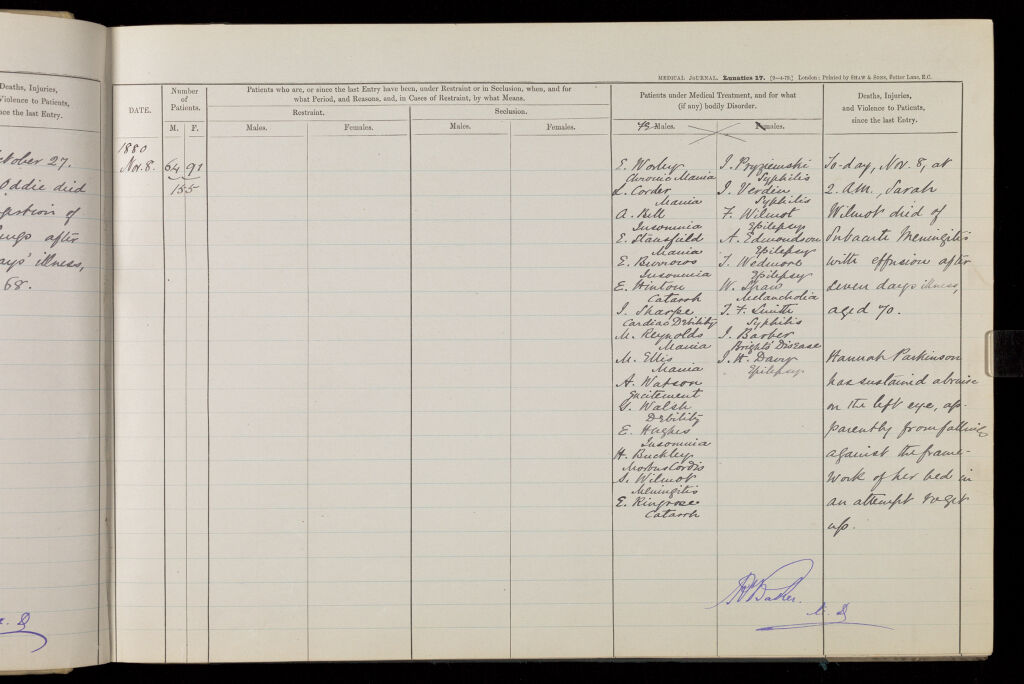 Deaths, Injuries,
Violence to Patients,
since the last Entry.
October 27.
Oddie died
gestion of
lungs after
days' illness,
68.
MEDICAL JOURNAL. Lunatics 17. [9—4-79.] London: Printed by SHAW & SONS, Fetter Lane, E.C.
DATE.
Number
of
Patients.
M. F.
Patients who are, or since the last Entry have been, under Restraint or in Seclusion, when, and for
what Period, and Reasons, and, in Cases of Restraint, by what Means.
Restraint. Seclusion.
Males. Females. Males. Females.
Patients under Medical Treatment, and for what
(if any) bodily Disorder.
Males. Females.
Deaths, Injuries,
and Violence to Patients,
since the last Entry.
1880
Nov. 8. 64 91
155
E. Worley
Chronic Mania
L. Corder
Mania
A. Hill
Insomnia
E. Stansfield
Mania
E. Burrows
Insomnia
E. Hinton
Catarrh
I. Sharpe
Cardiac Debility
M. Reynolds
Mania
M. Ellis
Mania
A. Watson
Excitement
G. Walsh
Debility
E. Hughes
Insomnia
H. Buckley
Morbus Cordis
S. Wilmot
Meningitis
E. Ringrose
Catarrh
I. Pryziemski
Syphilis
I. Verdin
Syphilis
F. Wilmot
Epilepsy
A. Edmondson
Epilepsy
T. Wedmore
Epilepsy
W. Shaw
Melancholia
T. F. Smith
Syphilis
I. Barber
Bright's Disease
I. H. Davy
Epilepsy
To-day, Nov. 8, at
2. A.M., Sarah
Wilmot died of
Subacute Meningitis
with effusion after
seven days illness,
aged 70.
Hannah Parkinson
has sustained a bruise
on the left eye, ap-
parently from falling
against the frame-
work of her bed in
an attempt to get
up.
Baker. M. D